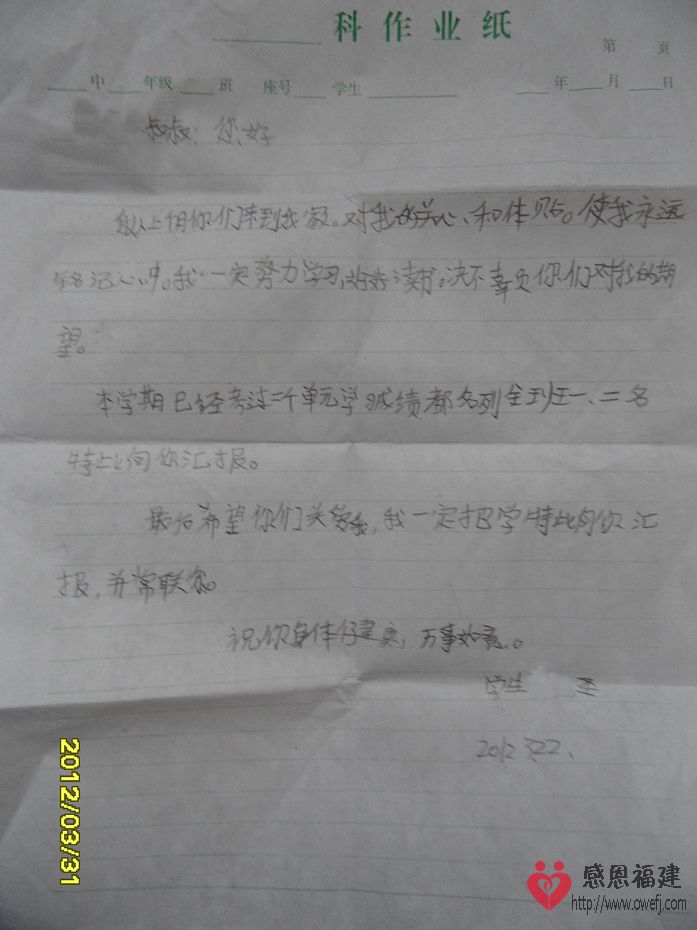 科作业纸
第 页
中 年级 班 座号 学生 年 月 日
叔叔:您好
上佣你们来到我家。对我的关心、和体贴。使我永远
记心中。我一定努力学习,好好读书。决不辜负你们对我的期
望。
本学期已经考过二个单元学成绩都名列全班一、二名
特此向你汇报。
最后希望你们关爱我,我一定把学特此向你汇
报,并常联家。
祝你身体健康,万事如意。
学生
2012 3.22.
2012/03/31
感恩福建
http://www.owefj.com